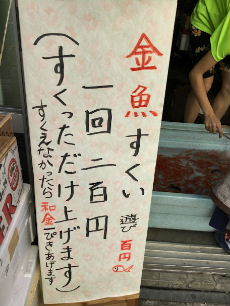 金魚すくい 遊び百円
一回二百円
(すくっただけ上げます)
すくえなかったら和金一ぴきあげます